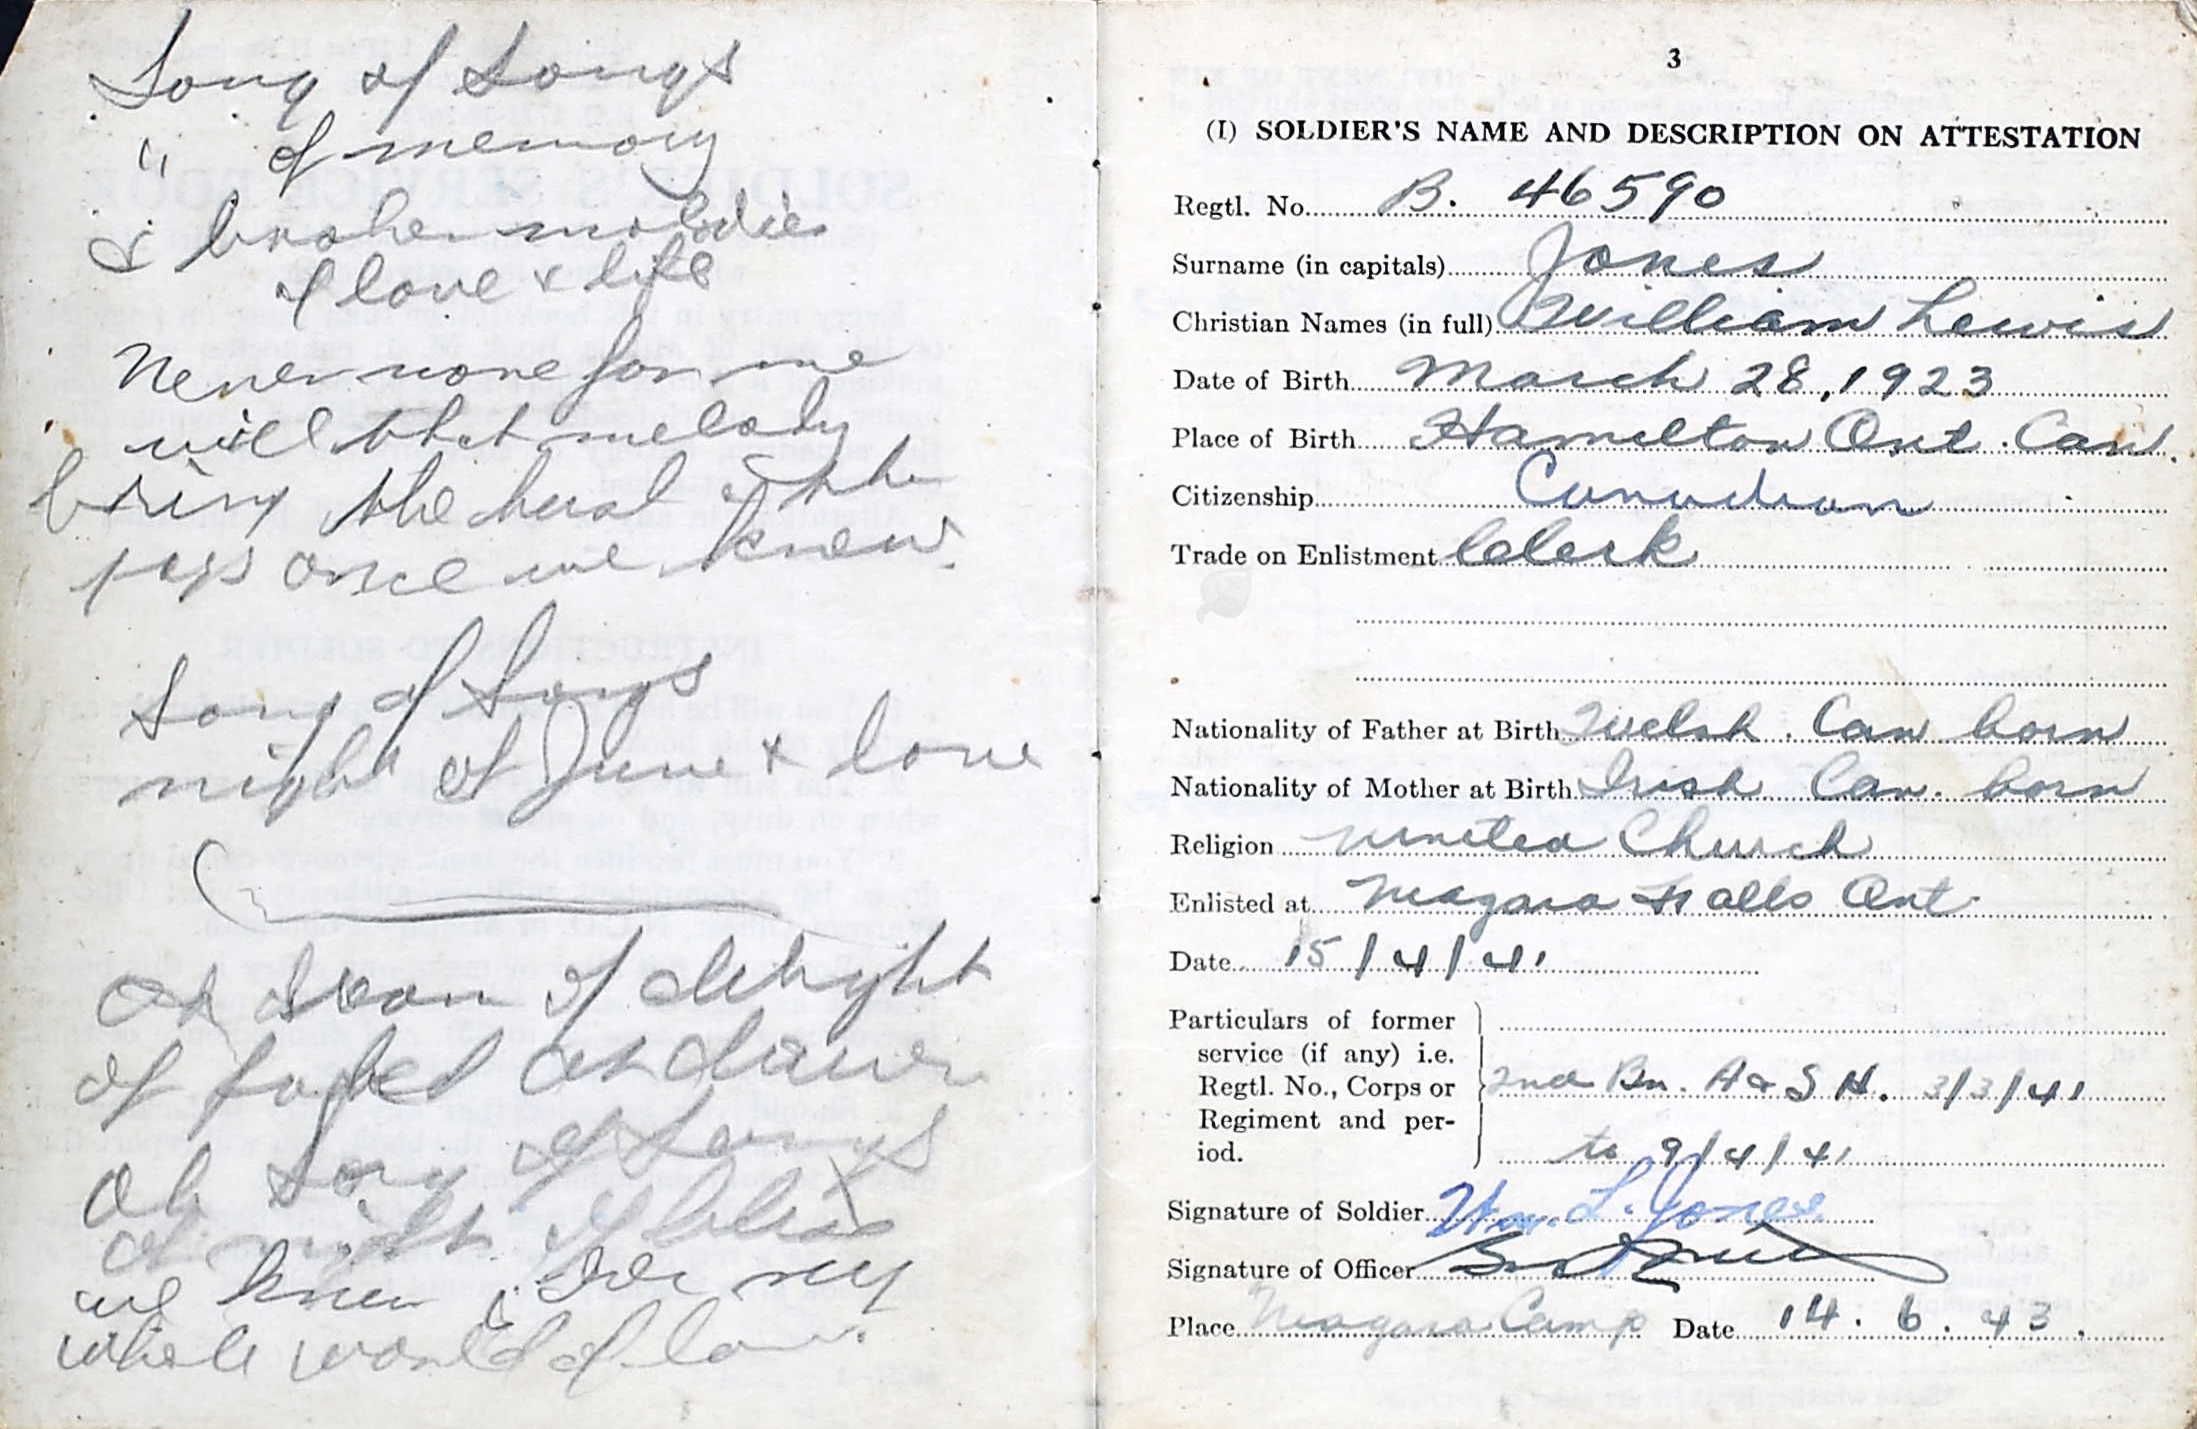 Song of Songs
" of memory
& broken melodies
of love & life
Never more for me
will that melody
bring the heal of the
joys once we knew.
Song of Songs
night of June & love
of delight
of
Oh Song of Songs
Of night of bliss
we knew
whole world of love.
3
(I) SOLDIER'S NAME AND DESCRIPTION ON ATTESTATION
Regtl. No. B. 46590
Surname (in capitals) Jones
Christian Names (in full) William Lewis
Date of Birth March 28, 1923
Place of Birth Hamilton Ont. Can.
Citizenship Canadian
Trade on Enlistment Clerk
Nationality of Father at Birth Welsh. Can born
Nationality of Mother at Birth Irish Can. born
Religion United Church
Enlisted at Niagara Falls Ont.
Date 15/4/41
Particulars of former
service (if any) i.e.
Regtl. No., Corps or 2nd Bn. A & S H. 3/3/41
Regiment and per-
iod. to 9/4/41
Signature of Soldier Wm. L. Jones
Signature of Officer
Place Niagara Camp Date 14. 6. 43.